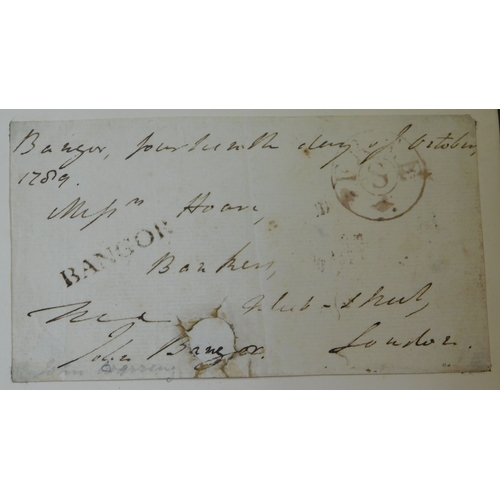 Bangor, fourteenth day of October,
1789.
Messrs Hoare,
BANGOR
Bankers,
Fleet-Street,
John Bangor. London.